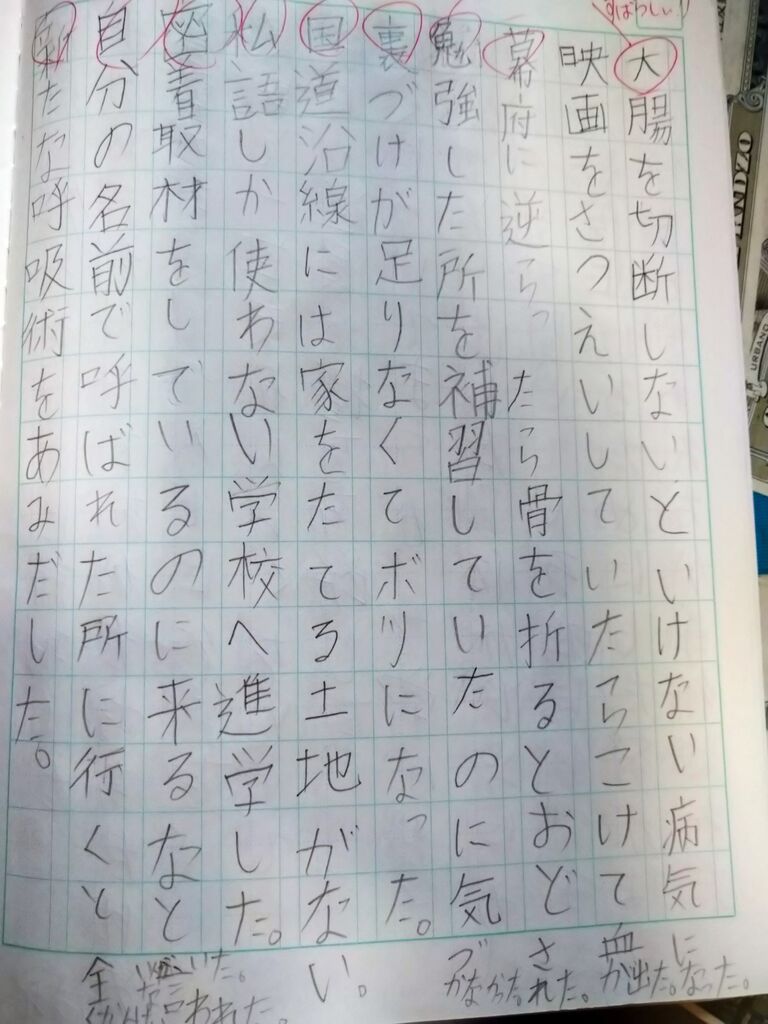 すばらしい!
大腸を切断しないといけない病気になった。
映画をさつえいしていたらこけて血が出た。
幕府に逆らったら骨を折るとおどされた。
勉強した所を補習していたのに気づかなかった。
裏づけが足りなくてボツになった。
国道沿線には家をたてる土地がない。
私語しか使わない学校へ進学した。
密着取材をしでいるのに来るなと
自分の名前で呼ばれた所に行くと全く
新たな呼吸術をあみだした。
URBANO